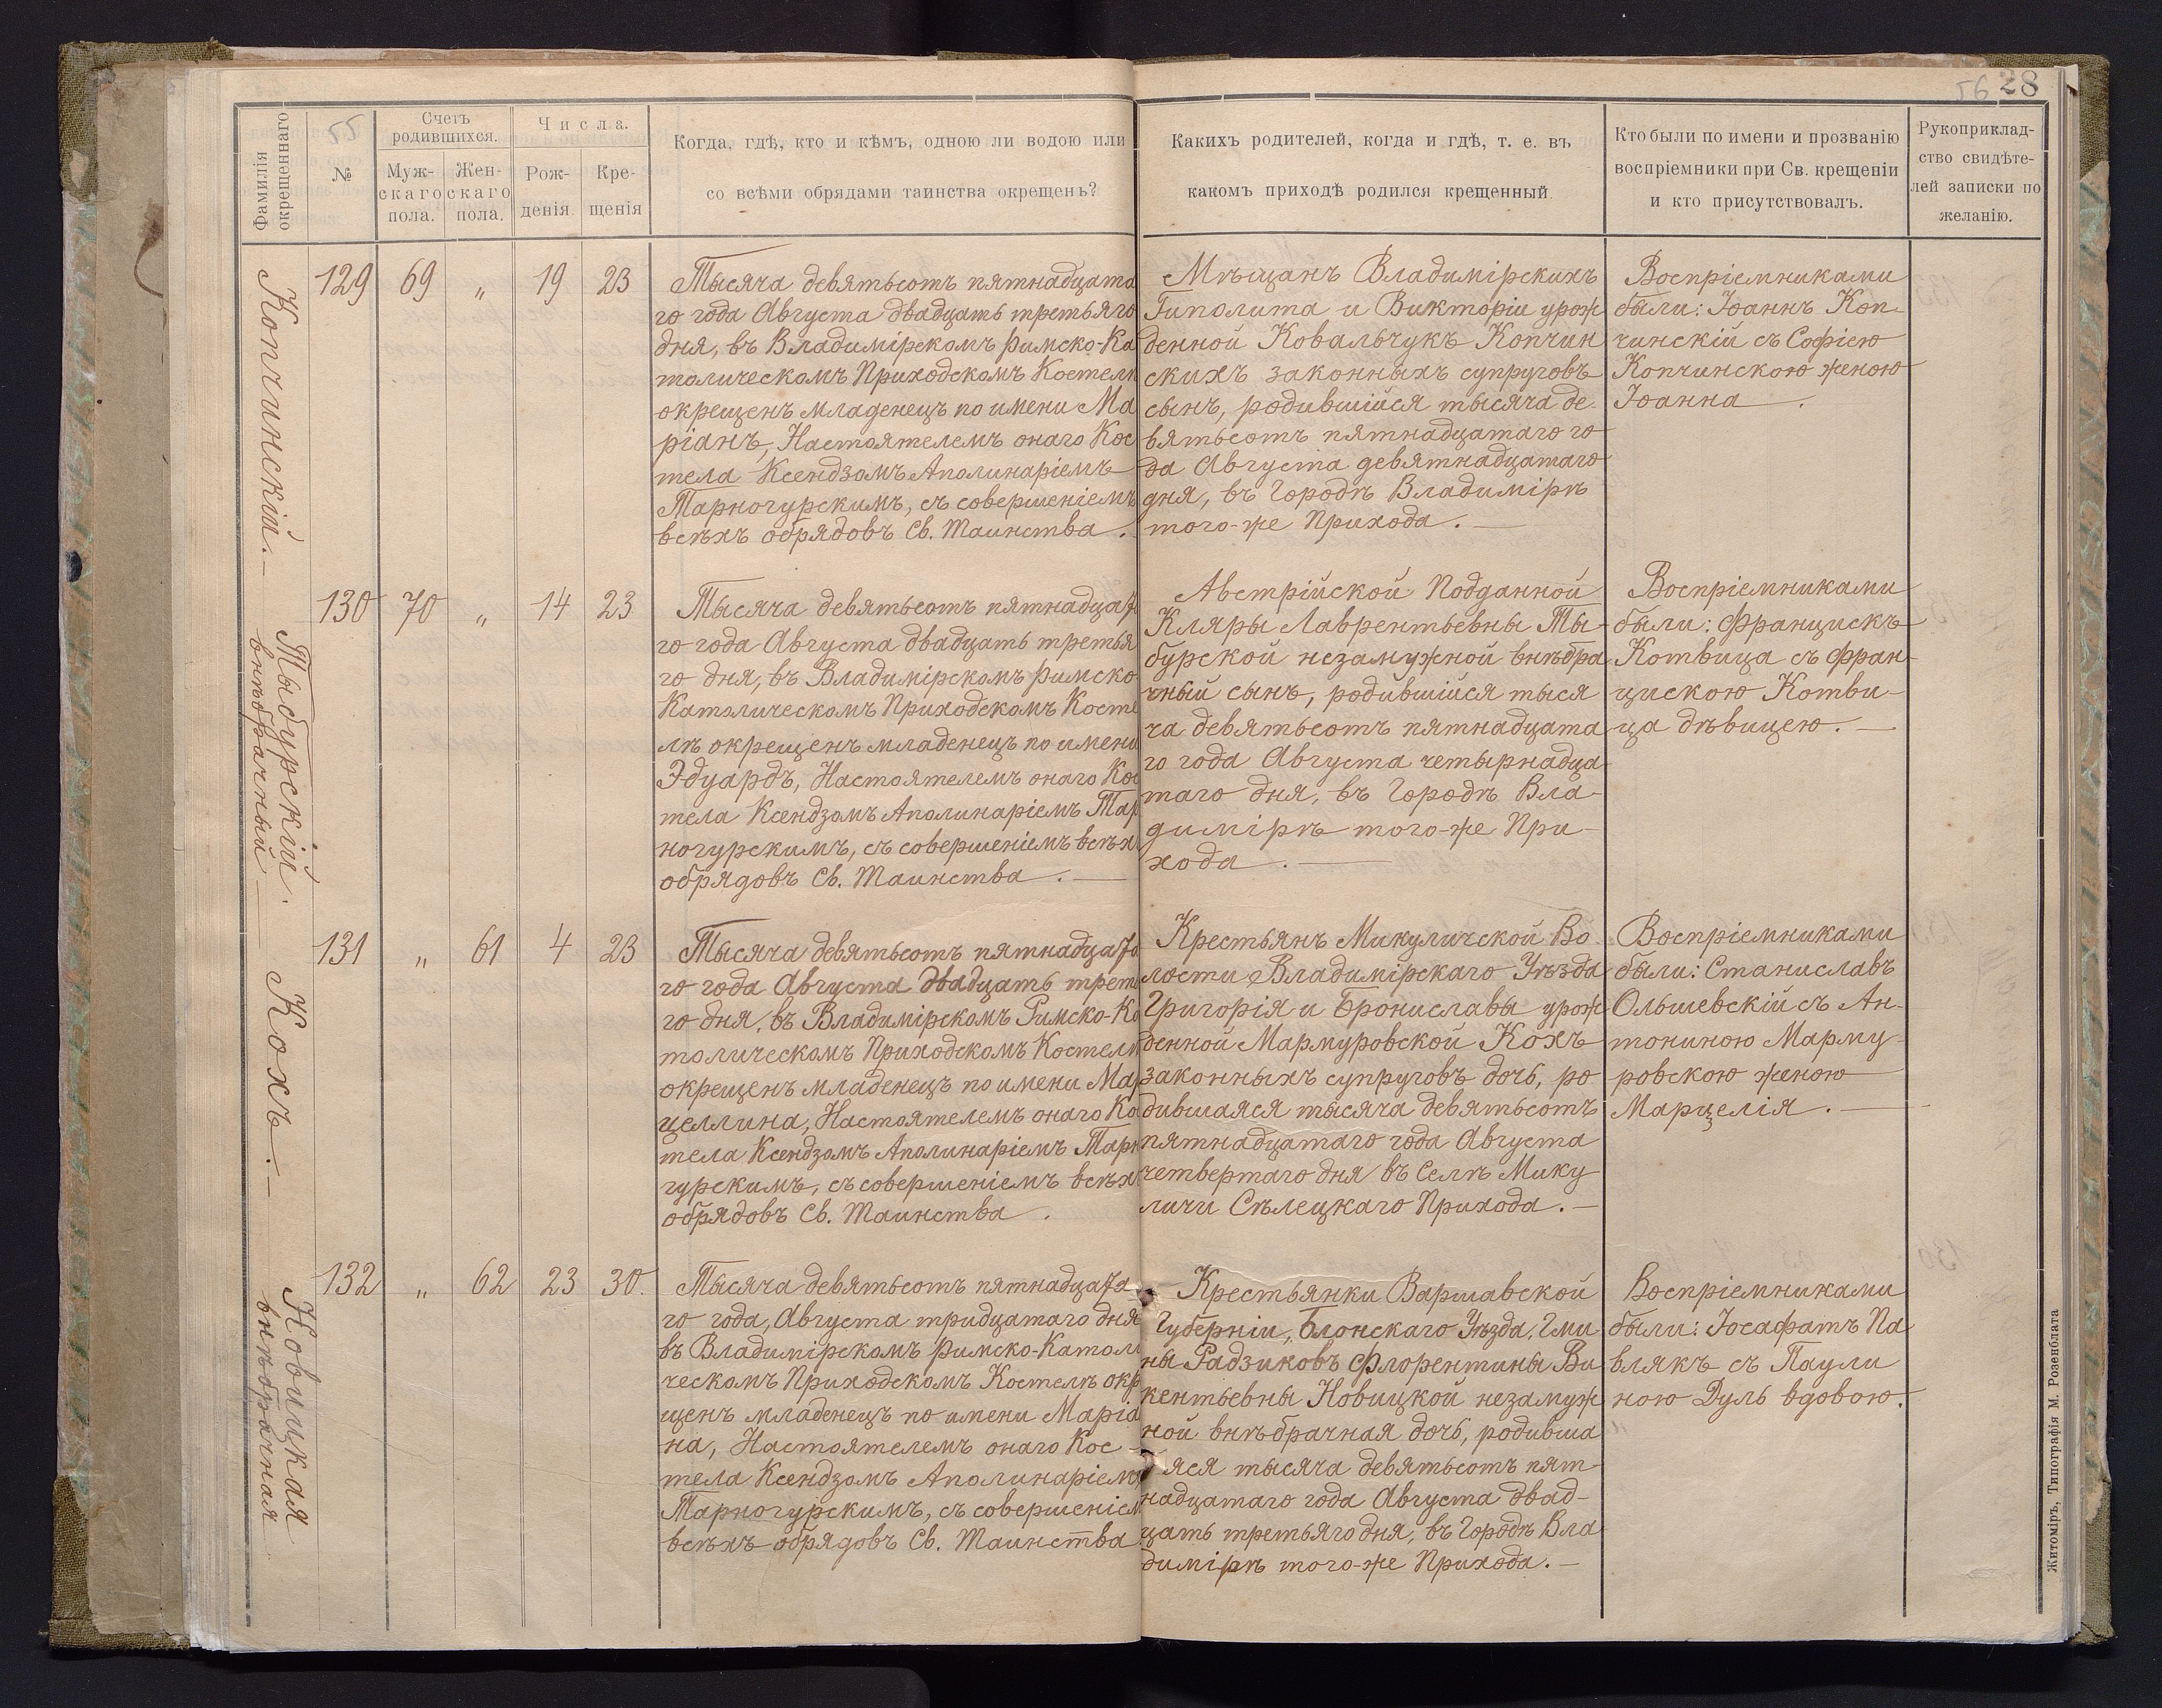 56 28
Фамилія
окрещеннаго
55
№
Счетъ
родившихся.
Муж-
скаго
пола.
Жен-
скаго
пола.
Числа.
Рож-
денія
Кре-
щенія
Когда, гдѣ, кто и кѣмъ, одною ли водою или
со всѣми обрядами таинства окрещенъ?
Какихъ родителей, когда и гдѣ, т. е. въ
какомъ приходѣ родился крещенный.
Кто были по имени и прозванію
воспріемники при Св. крещеніи
и кто присутствовалъ.
Рукоприклад-
ство свидѣте-
лей записки по
желанію.
Копчинскій.
129 69 „ 19 23
Тысяча девятьсотъ пятнадцата
го года Августа двадцать третьяго
дня, въ Владимірскомъ Римско-Ка
толическомъ Приходскомъ Костелѣ
окрещенъ младенецъ по имени Ма
ріанъ, Настоятелемъ онаго Кос
тела Ксендзомъ Аполинаріемъ
Тарногурскимъ, съ совершеніемъ
всѣхъ обрядовъ Св. Таинства.
Мѣщанъ Владимірскихъ
Гиполита и Викторіи урож
денной Ковальчукъ Копчин
скихъ законныхъ супруговъ
сынъ, родившійся тысяча де-
вятьсотъ пятнадцатаго го
да Августа девятнадцатаго
дня, въ Городѣ Владимірѣ
того-же Прихода.
Воспріемниками
были: Іоаннъ Коп-
чинскій съ Софіею
Копчинскою женою
Іоанна.
Тыбурскій.
внѣбрачный
130 70 „ 14 23
Тысяча девятьсотъ пятнадцата
го года Августа двадцать третья
го дня, въ Владимірскомъ Римско
Католическомъ Приходскомъ Косте
лѣ окрещенъ младенецъ по имени
Эдуардъ, Настоятелемъ онаго Кос
тела Ксендзомъ Аполинаріемъ Тар
ногурскимъ, съ совершеніемъ всѣхъ
обрядовъ Св. Таинства.
Австрійской Подданной
Кляры Лаврентьевны Ты-
бурской незамужной внѣбра
чный сынъ, родившійся тыся
ча девятьсотъ пятнадцата
го года Августа четырнадца
таго дня, въ Городѣ Вла-
димірѣ того-же При-
хода.
Воспріемниками
были: Францискъ
Котвица съ Фран-
цискою Котви-
ца дѣвицею.
Кохъ.
131 „ 61 4 23
Тысяча девятьсотъ пятнадцата
го года Августа двадцать треть
го дня, въ Владимірскомъ Римско-Ка
толическомъ Приходскомъ Костелѣ
окрещенъ младенецъ по имени Мар
целлина, Настоятелемъ онаго Ко
тела Ксендзомъ Аполинаріемъ Тарн
гурскимъ, съ совершеніемъ всѣхъ
обрядовъ Св. Таинства.
Крестьянъ Микуличской Во
лости Владимірскаго Уѣзда
Григорія и Брониславы урож
денной Мармуровской Кохъ
законныхъ супруговъ дочь, ро
дившаяся тысяча девятьсотъ
пятнадцатаго года Августа
четвертаго дня въ Селѣ Мику
личи Сѣлецкаго Прихода.
Воспріемниками
были: Станиславъ
Ольшевскій съ Ан-
тониною Марму-
ровскою женою
Марцелія.
Новицкая
внѣбрачная
132 „ 62 23 30.
Тысяча девятьсотъ пятнадцата
го года, Августа тридцатаго дня
въ Владимірскомъ Римско-Католи
ческомъ Приходскомъ Костелѣ окр
щенъ младенецъ по имени Марія
на, Настоятелемъ онаго Кос
тела Ксендзомъ Аполинаріемъ
Тарногурскимъ, съ совершеніем
всѣхъ обрядовъ Св. Таинства
Крестьянки Варшавской
Губерніи, Блонскаго Уѣзда, Гми
ны Радзиковъ Флорентины Ви
кентьевны Новицкой незамуж
ной внѣбрачная дочь, родивша
яся тысяча девятьсотъ пят-
надцатаго года Августа двад-
цать третьяго дня, въ Городѣ Вла
димірѣ того-же Прихода.
Воспріемниками
были: Іосафатъ Па
влякъ съ Паули
ною Дуль вдовою.
Житоміръ, Типографія М. Розенблата